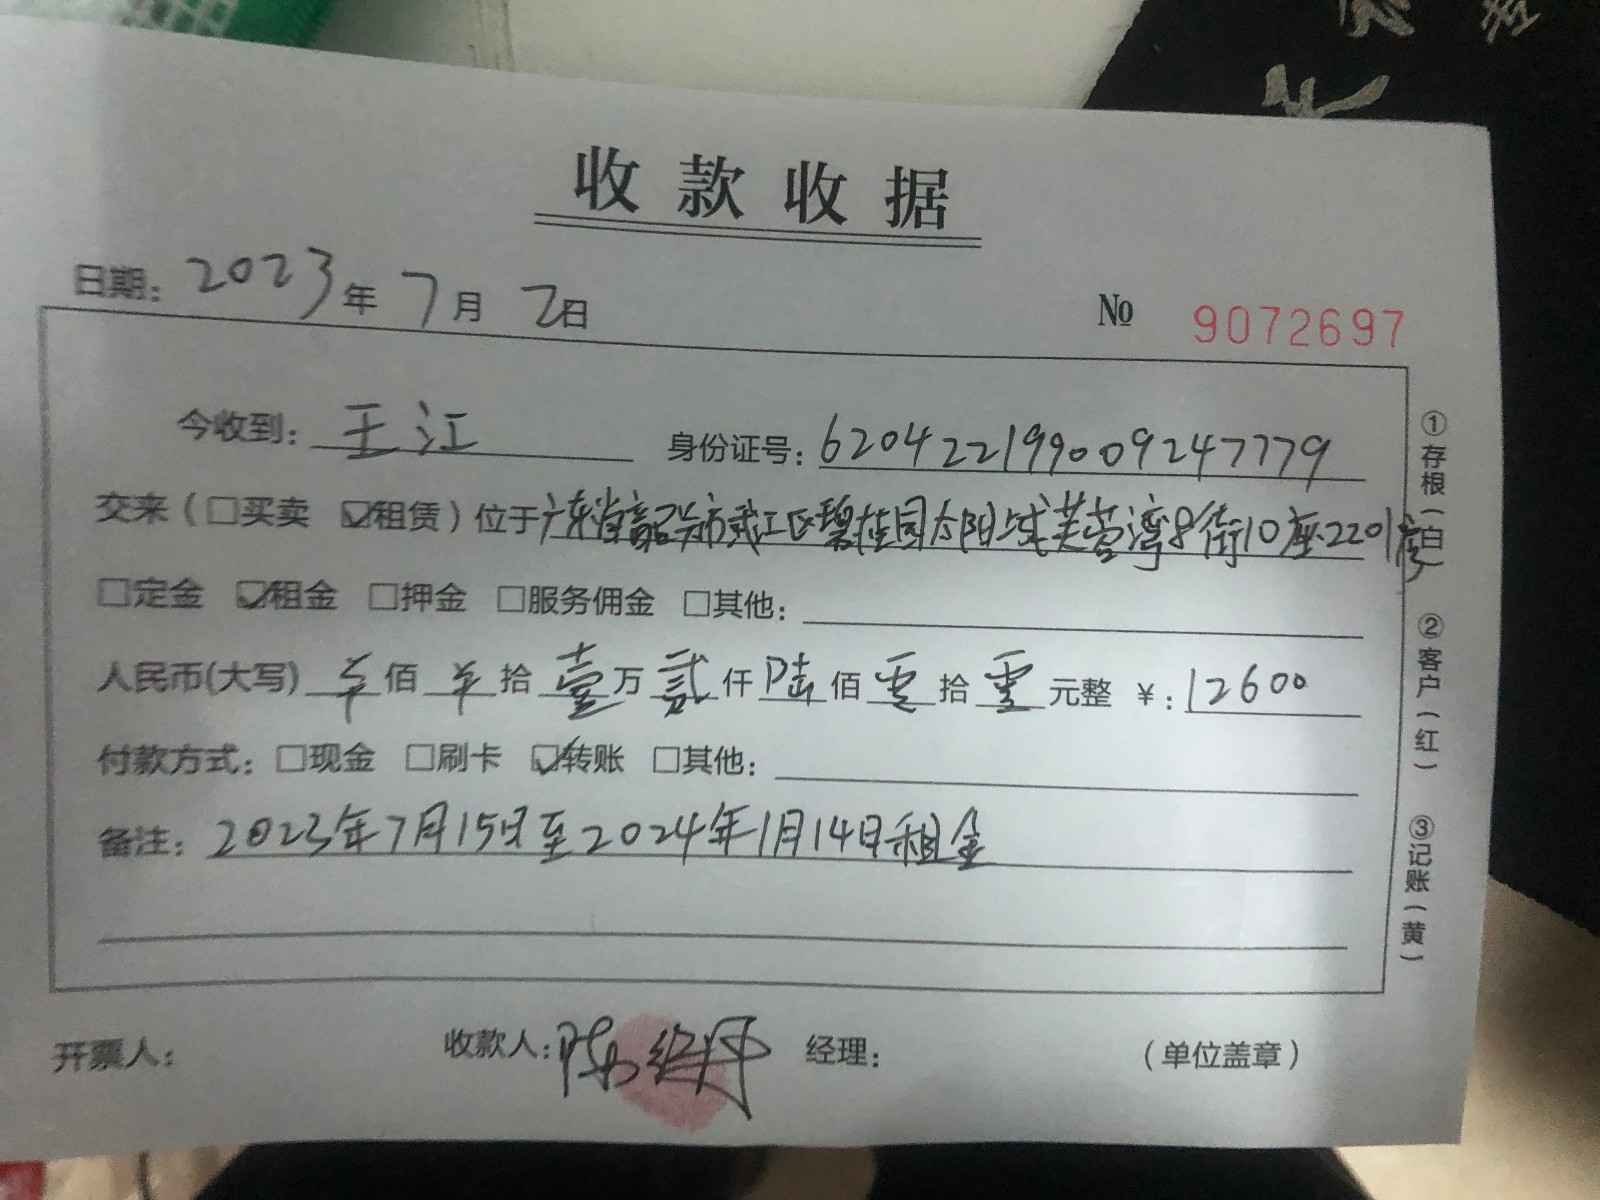 收款收据
日期：2023年7月2日
№ 9072697
今收到：王江 身份证号：620422199009247779
交来（□买卖 ☑租赁）位于广东省韶关市武江区碧桂园太阳城芙蓉湾8街10座2201房
□定金 ☑租金 □押金 □服务佣金 □其他：
人民币(大写) 佰 拾 壹万贰仟陆佰零拾零元整 ￥：12600
付款方式：□现金 □刷卡 ☑转账 □其他：
备注：2023年7月15日至2024年1月14日租金
开票人： 收款人：陈 经理： （单位盖章）
①存根（白） ②客户（红） ③记账（黄）